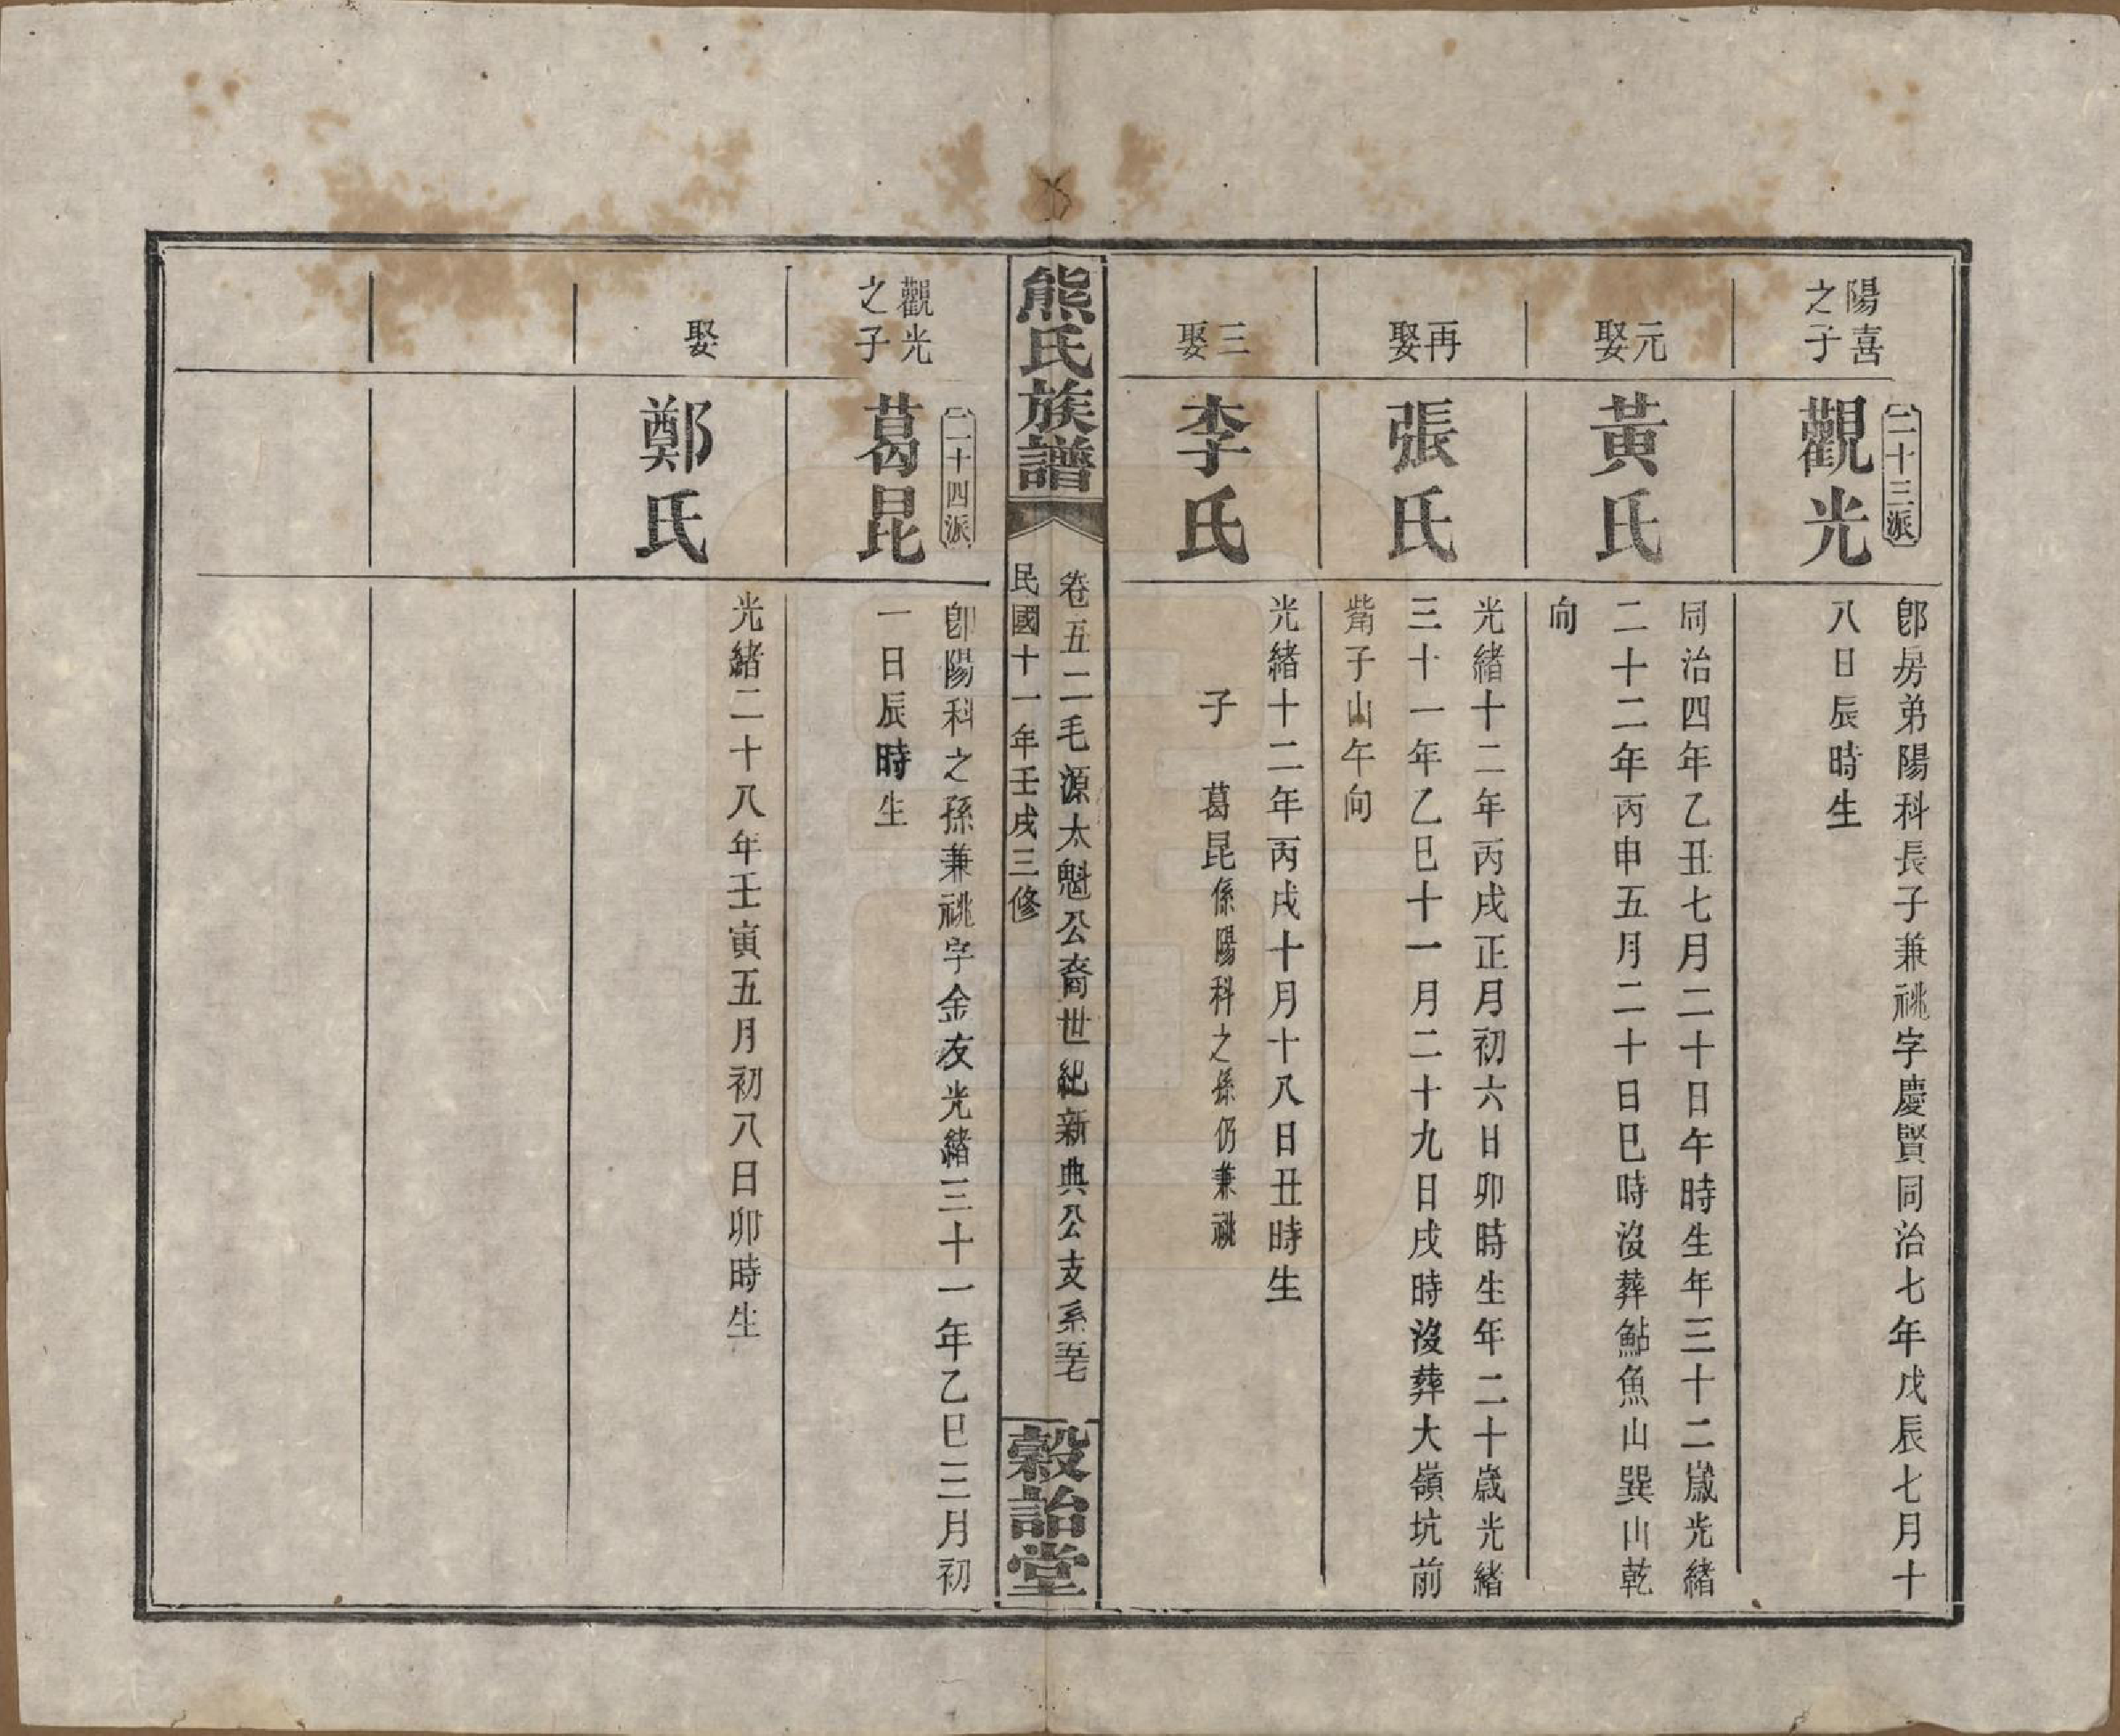 陽喜
之子
二十三派
觀光
卽房弟陽科長子兼祧字慶賢同治七年戊辰七月十
八日辰時生
元娶
黃氏
同治四年乙丑七月二十日午時生年三十二歲光緒
二十二年丙申五月二十日巳時沒葬鮎魚山巽山乾
向
再娶
張氏
光緒十二年丙戌正月初六日卯時生年二十歲光緒
三十一年乙巳十一月二十九日戌時沒葬大嶺坑前
觜子山午向
三娶
李氏
光緒十二年丙戌十月十八日丑時生
子　葛昆係陽科之孫仍兼祧
熊氏族譜
卷五二毛源太魁公裔世紀新典公支系五七
民國十一年壬戌三修
榖詒堂
觀光
之子
二十四派
葛昆
卽陽科之孫兼祧字金友光緒三十一年乙巳三月初
一日辰時生
娶
鄭氏
光緒二十八年壬寅五月初八日卯時生